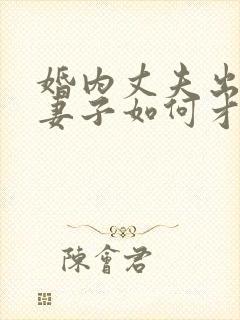 婚内丈夫出
妻子如何才
陳會君